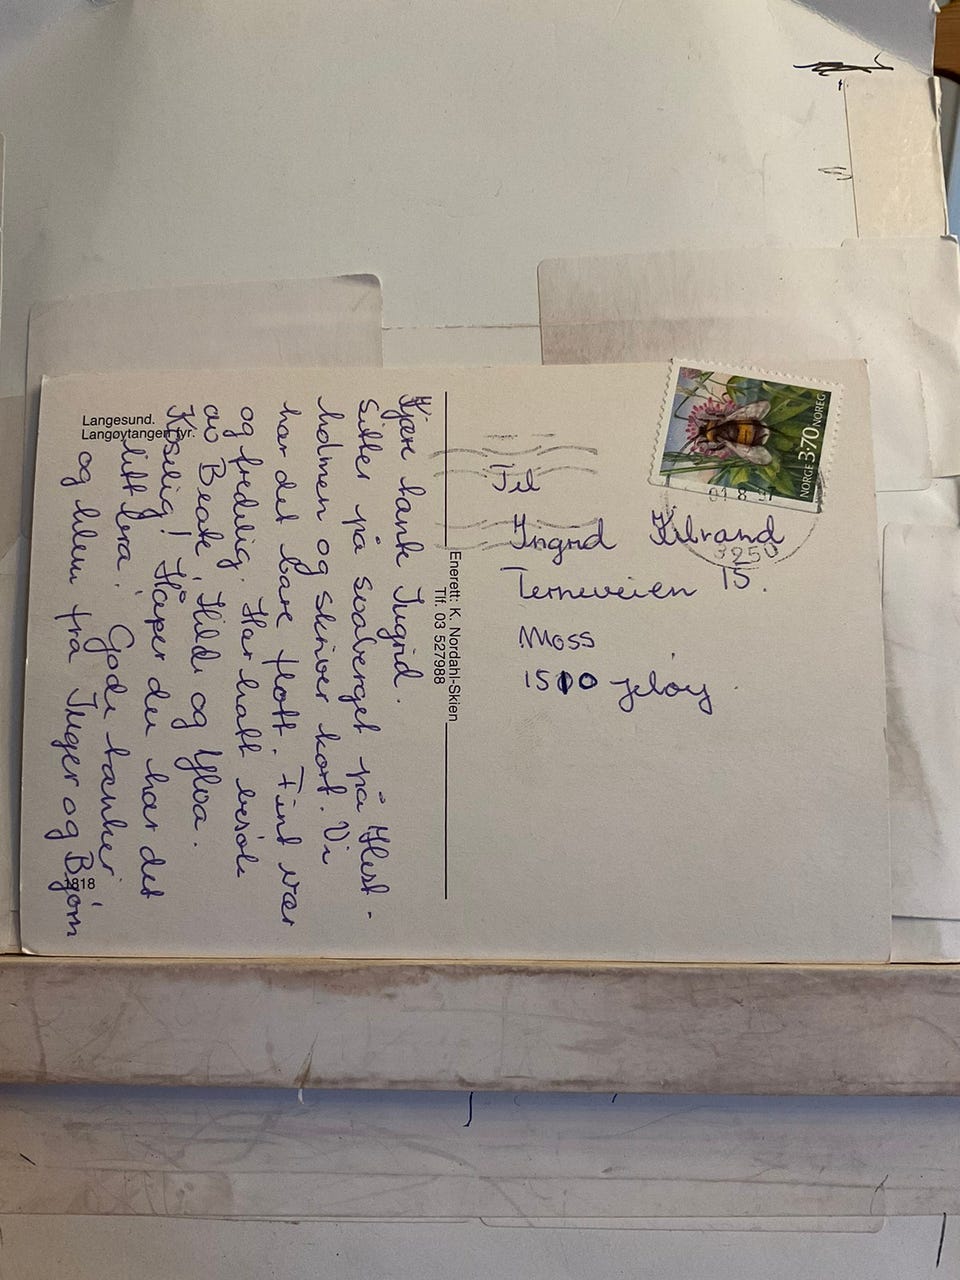 Langesund.
Langøytangen fyr.
Kjære tante Ingrid.
Sitter på svaberget på Hest-
holmen og skriver kort. Vi
har det bare flott. Fint vær
og fredelig. Har hatt besøk
av Beate, Hilde og Ylva.
Koselig! Håper du har det
litt bra. Gode tanker
og hilsen fra Inger og Bjørn
1818
Enerett: K. Nordahl-Skien
Tlf. 03 527988
NORGE 370 NOREG
3250
Til
Ingrid
Terneveien 15.
Moss
1510 Jeløy